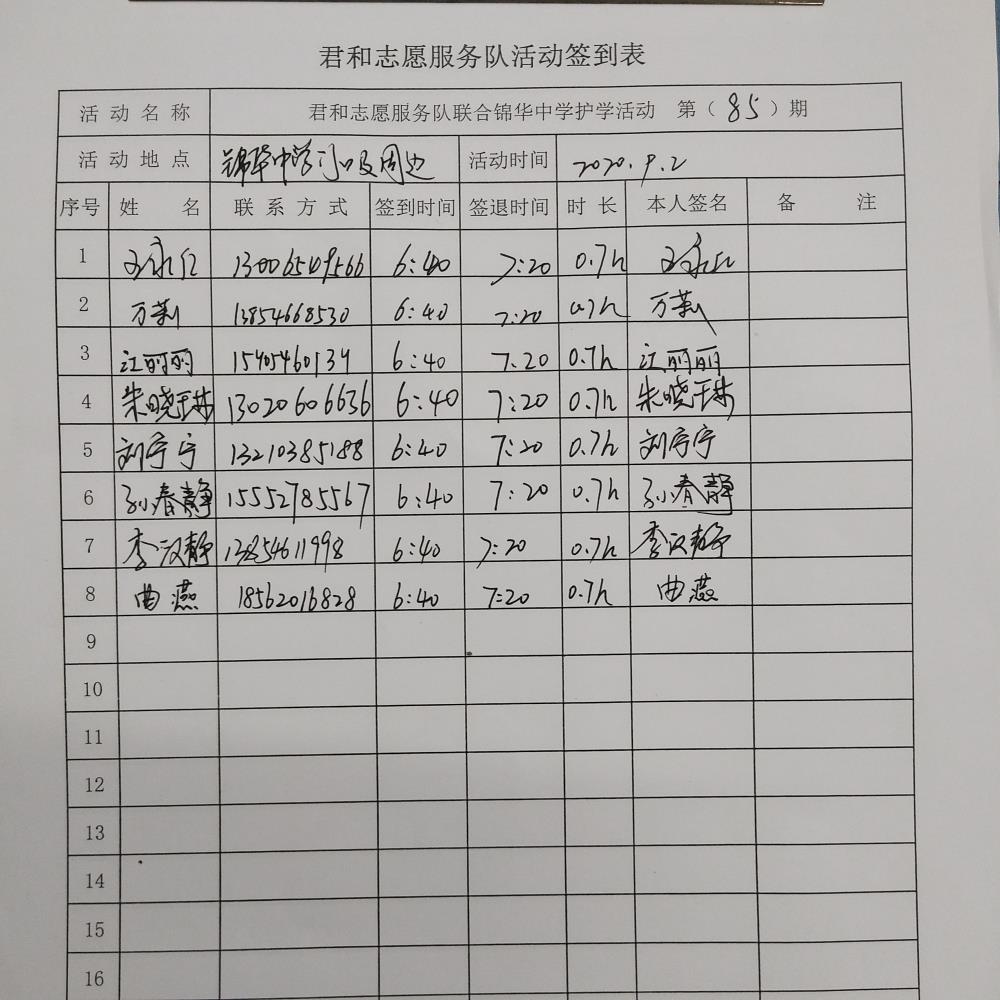 君和志愿服务队活动签到表
活动名称 君和志愿服务队联合锦华中学护学活动 第（85）期
活动地点 锦华中学门口及周边 活动时间 2020.9.2
序号 姓 名 联系方式 签到时间 签退时间 时长 本人签名 备 注
1 王永仁 13006549566 6:40 7:20 0.7h 王永仁
2 万莉 13854668530 6:40 7:20 0.7h 万莉
3 江丽丽 6:40 7.20 0.7h 江丽丽
4 朱晓琳 13020606636 6:40 7:20 0.7h 朱晓琳
5 刘宁宁 13210385188 6:40 7:20 0.7h 刘宁宁
6 孙春静 15552785567 6:40 7:20 0.7h 孙春静
7 李汉静 13854611998 6:40 7:20 0.7h 李汉静
8 曲燕 18562016828 6:40 7:20 0.7h 曲燕
9
10
11
12
13
14
15
16